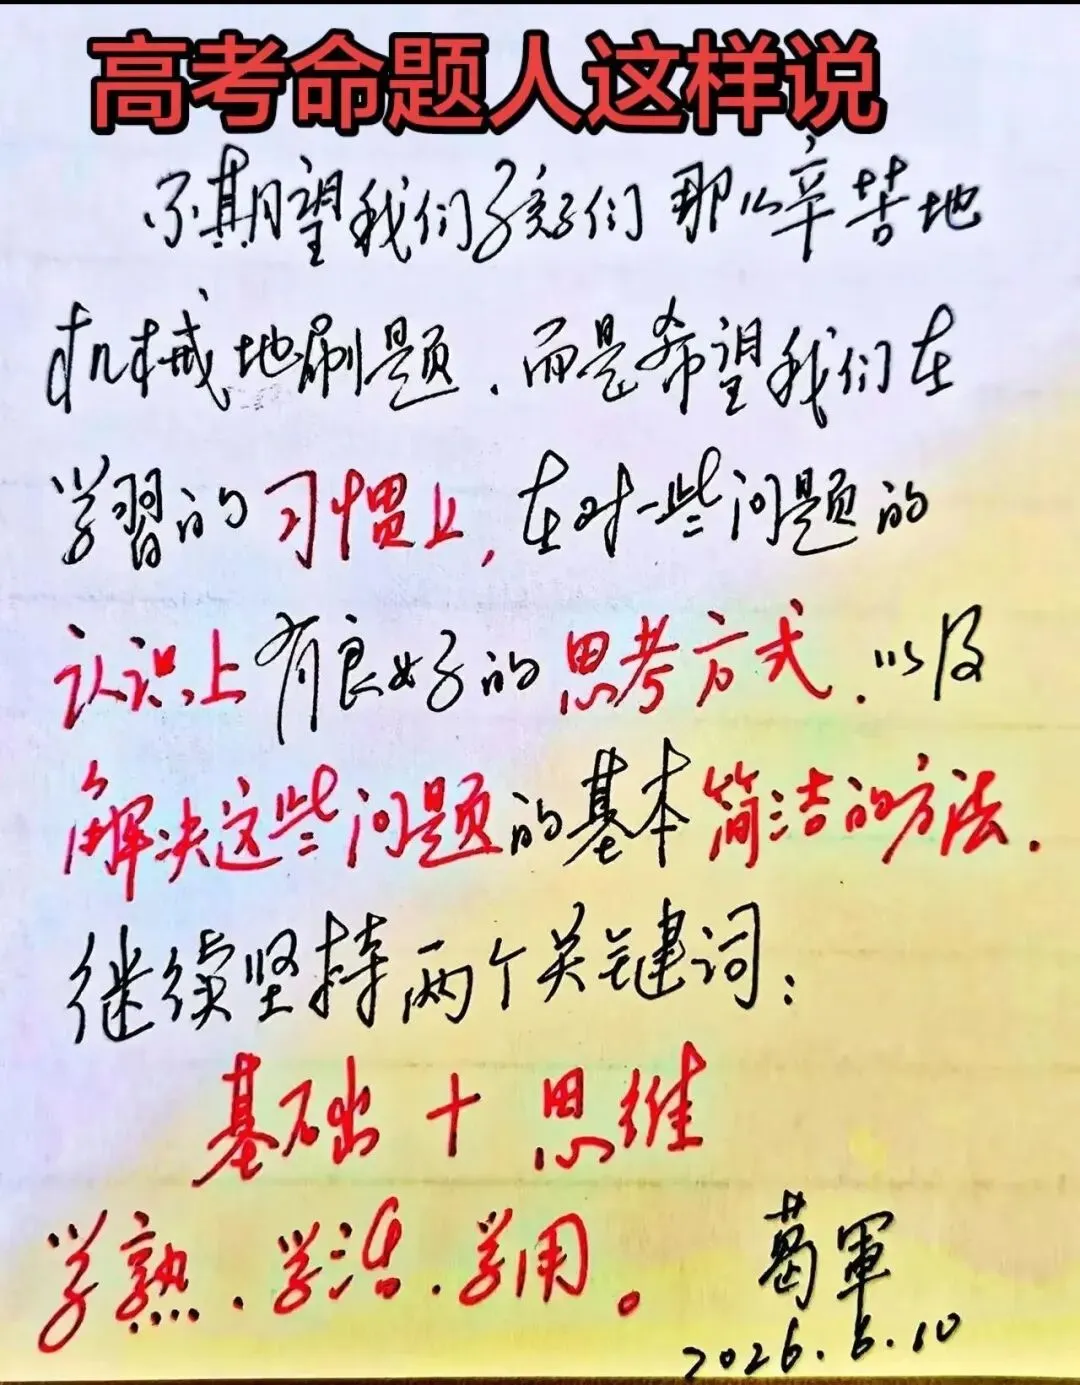 高考命题人这样说
不期望我们孩子们那么辛苦地
机械地刷题.而是希望我们在
学習的习惯上,在对一些问题的
认识上有良好的思考方式.以及
解决这些问题的基本简洁的方法.
继续坚持两个关键词:
基础+思维
学熟.学活.学用。
葛軍
2026.6.10